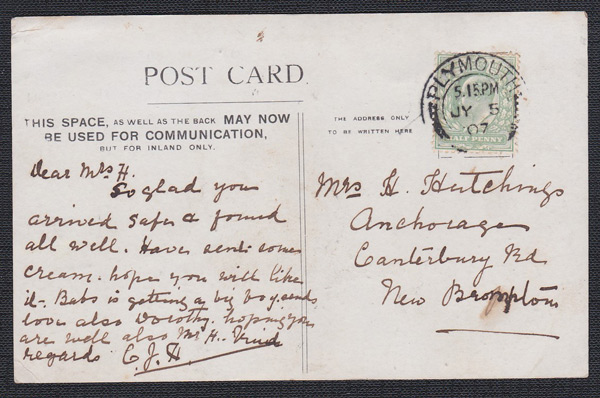 POST CARD
THIS SPACE, AS WELL AS THE BACK MAY NOW
BE USED FOR COMMUNICATION,
BUT FOR INLAND ONLY.
THE ADDRESS ONLY
TO BE WRITTEN HERE
PLYMOUTH
5.15PM
JY 5
07
HALF PENNY
Dear Mrs H.
So glad you
arrived safe & found
all well. Have sent some
cream. hope you will like
it. Babs is getting a big boy. sends
love also Dorothy. hoping you
are well also Mr H. Kind
regards C. J. H
Mrs H. Hutchings
Anchorage
Canterbury Rd
New Brompton